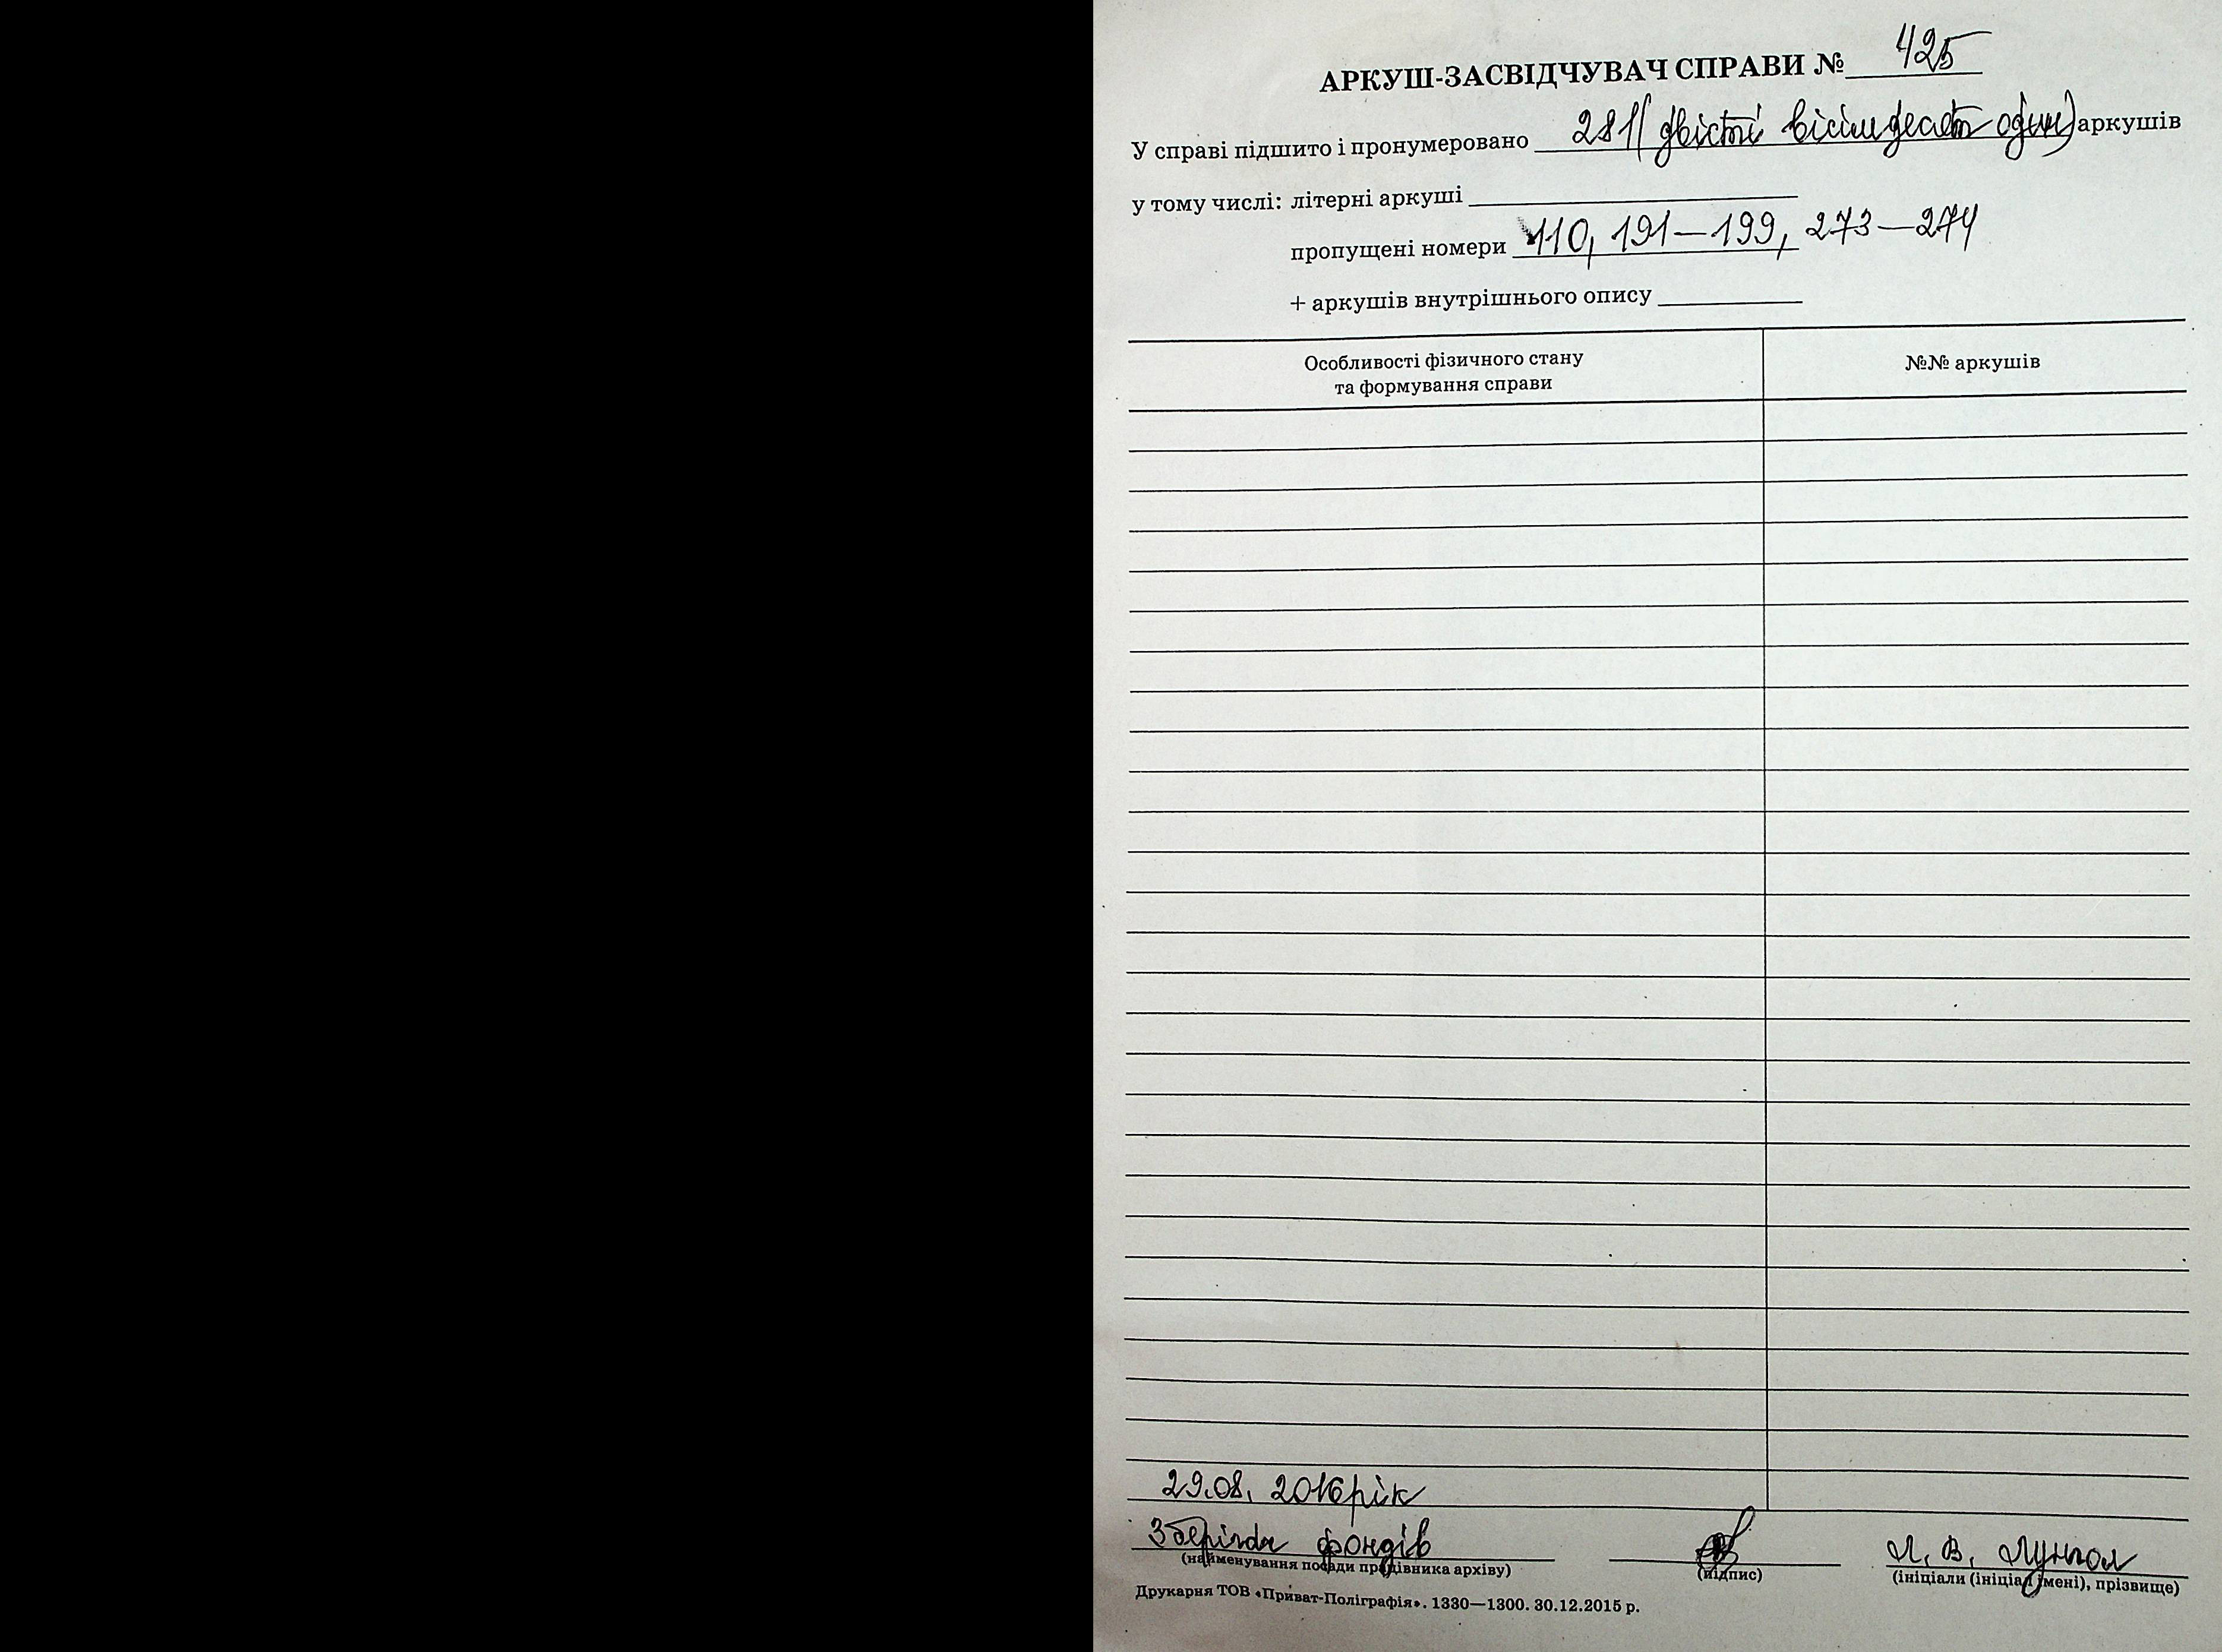 АРКУШ-ЗАСВІДЧУВАЧ СПРАВИ № 425
У справі підшито і пронумеровано 281 (двісті вісімдесят один) аркушів
у тому числі: літерні аркуші
пропущені номери 110, 191—199, 273—274
+ аркушів внутрішнього опису
Особливості фізичного стану
та формування справи
№№ аркушів
29.08. 2016 рік
Зберігач фондів Л. В.
(найменування посади працівника архіву) (підпис) (ініціали (ініціал імені), прізвище)
Друкарня ТОВ «Приват-Поліграфія». 1330—1300. 30.12.2015 р.